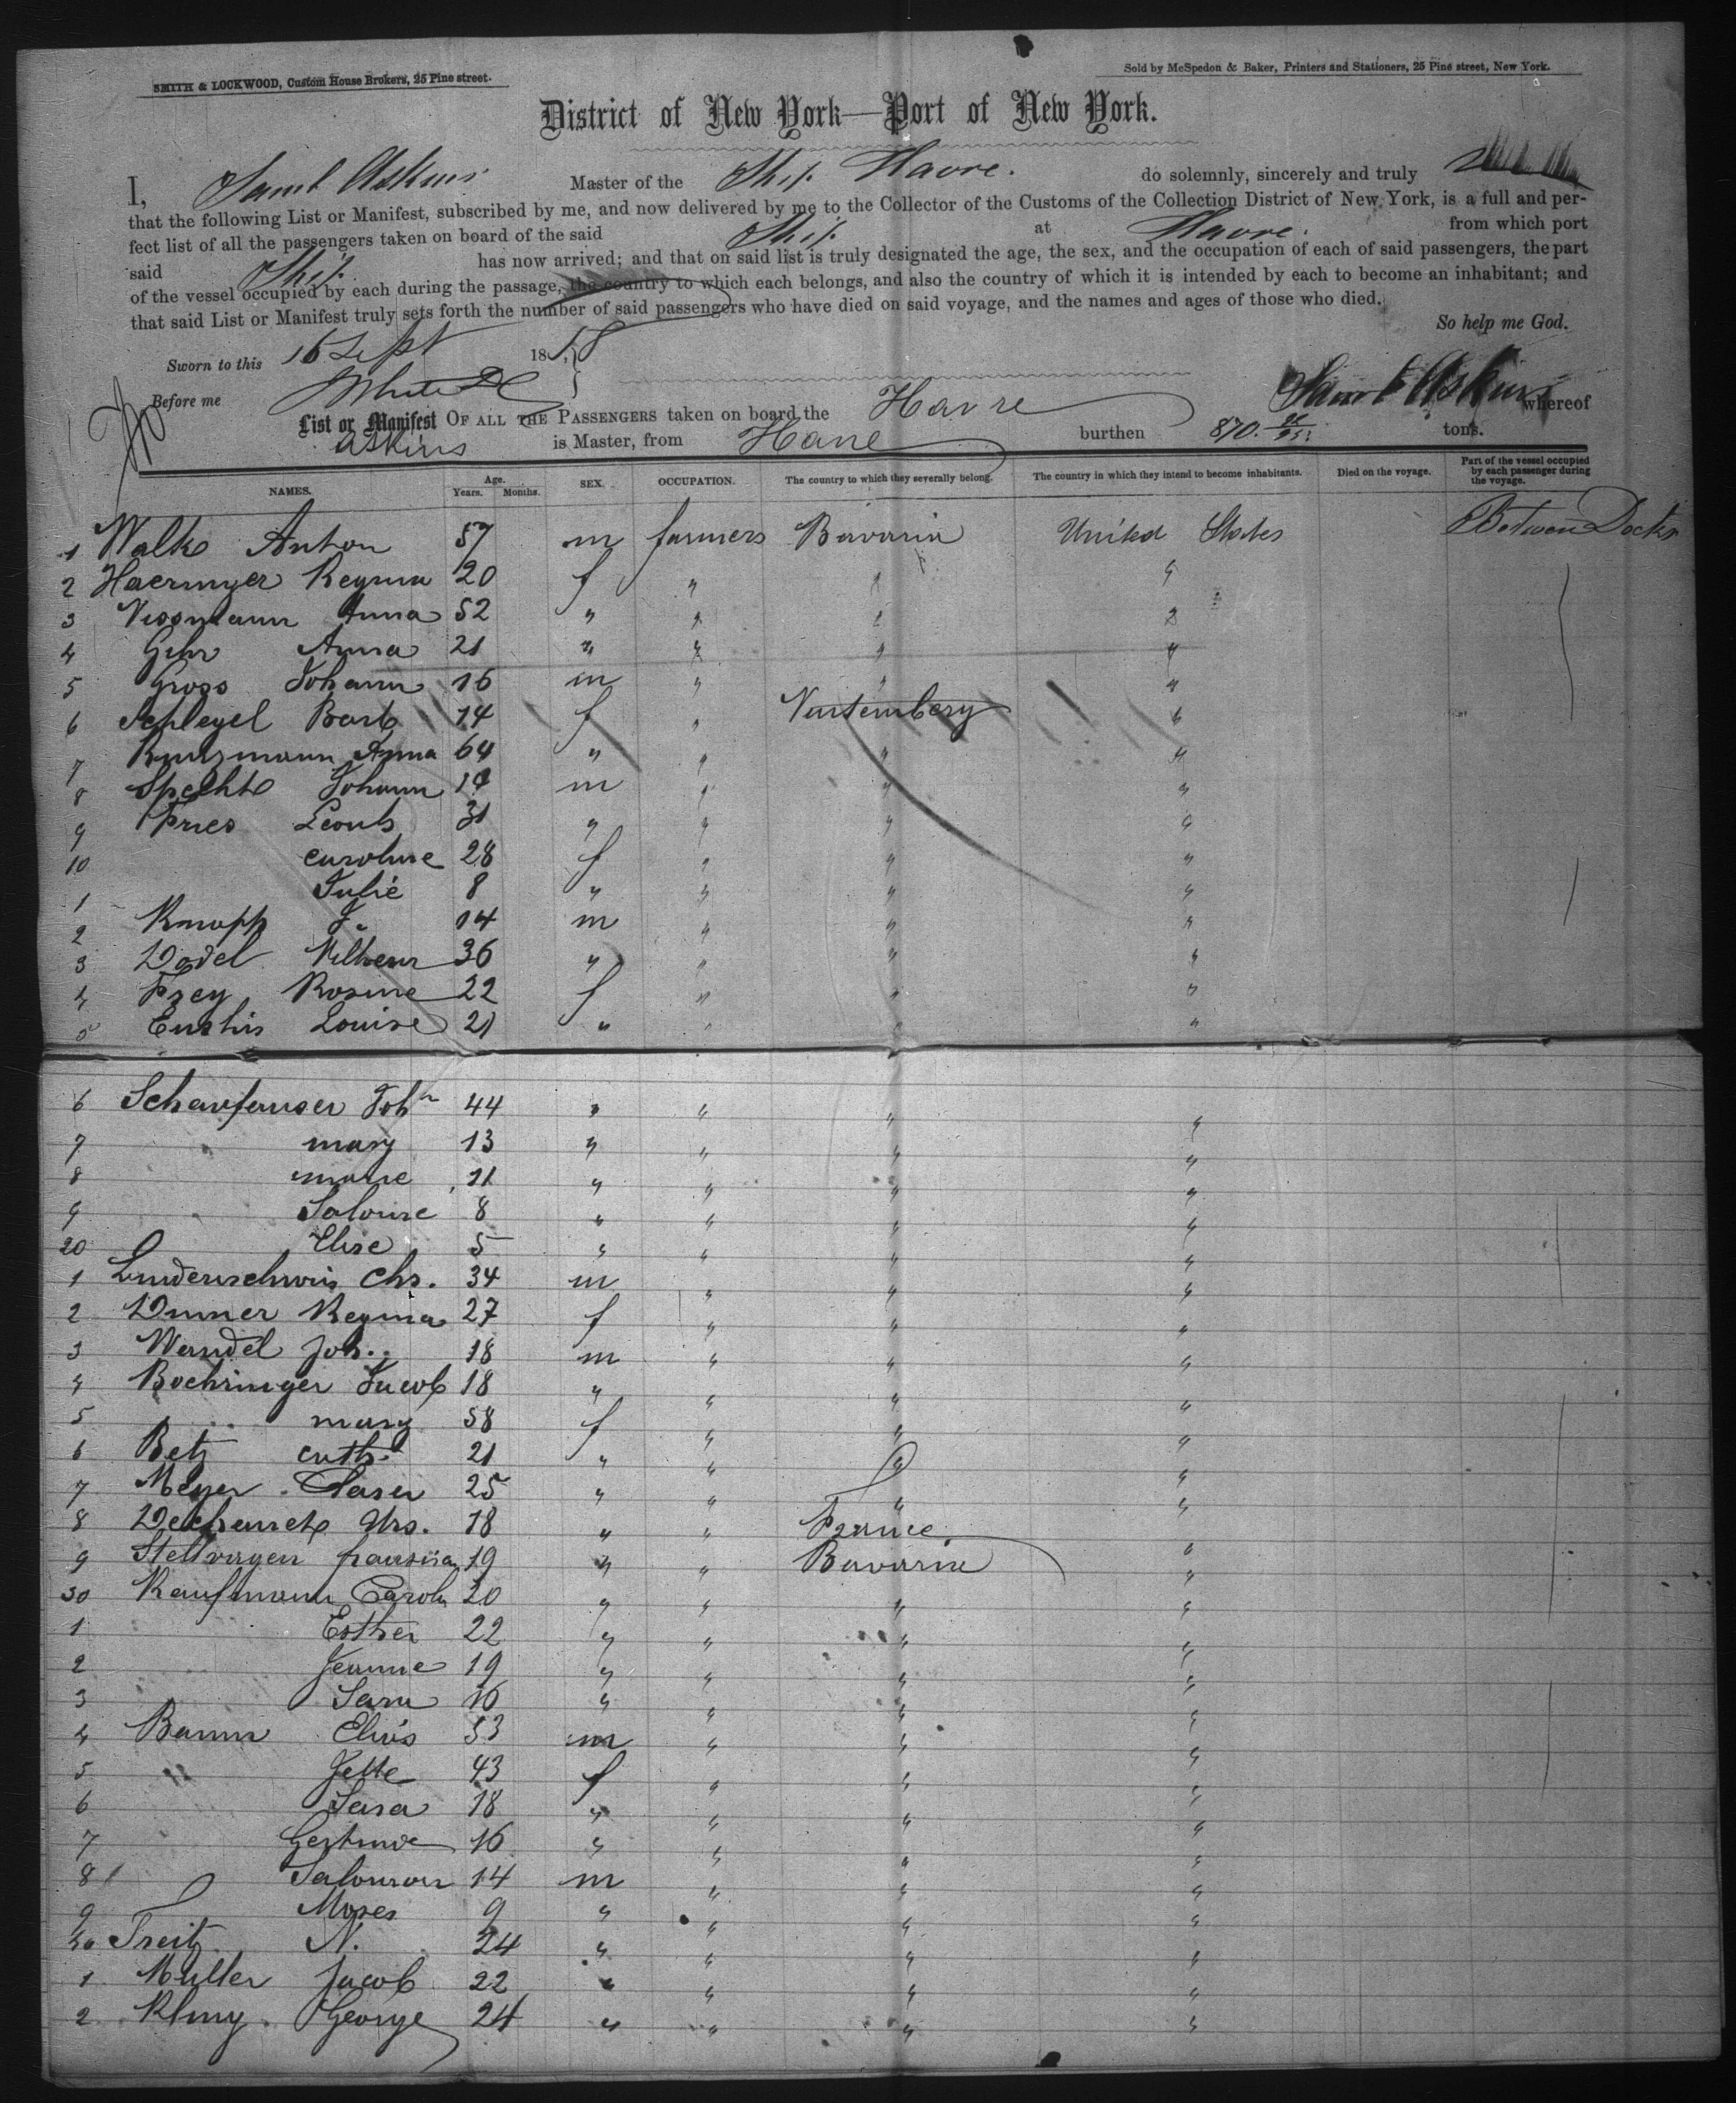 SMITH & LOCKWOOD, Custom House Brokers, 25 Pine street.
Sold by McSpedon & Baker, Printers and Stationers, 25 Pine street, New York.
District of New York—Port of New York.
I, Saml Askins Master of the Ship Havre. do solemnly, sincerely and truly
that the following List or Manifest, subscribed by me, and now delivered by me to the Collector of the Customs of the Collection District of New York, is a full and per-
fect list of all the passengers taken on board of the said Ship at Havre. from which port
said Ship has now arrived; and that on said list is truly designated the age, the sex, and the occupation of each of said passengers, the part
of the vessel occupied by each during the passage, the country to which each belongs, and also the country of which it is intended by each to become an inhabitant; and
that said List or Manifest truly sets forth the number of said passengers who have died on said voyage, and the names and ages of those who died.
So help me God.
Sworn to this 16 Sept 1858
Before me White Saml Askins
List or Manifest OF ALL THE PASSENGERS taken on board the Havre whereof
Askins is Master, from Havre burthen 870 tons.
NAMES. Age. Years. Months. SEX. OCCUPATION. The country to which they severally belong. The country in which they intend to become inhabitants. Died on the voyage. Part of the vessel occupied by each passenger during the voyage.
1 Walk Anton 57 m farmers Bavaria United States Between Decks
2 Haermyer Regina 20 f " " "
3 Vissmann Anna 52 " " " "
4 Gehr Anna 21 " " " "
5 Gross Johann 16 m " " "
6 Schlegel Barb 14 f " Wurtemberg "
7 Anna 64 " " " "
8 Specht Johann 19 m " " "
9 Fries Leonh 31 " " " "
10 Caroline 28 f " " "
1 Julie 8 " " " "
2 Knapp J. 14 m " " "
3 Dodel Wilhelm 36 " " " "
4 Frey Rosine 22 f " " "
5 Louise 21 " " " "
6 Joh 44 " " " "
7 mary 13 " " " "
8 marie 11 " " " "
9 Salome 8 " " " "
20 Elise 5 " " " "
1 Chs. 34 m " " "
2 Regina 27 f " " "
3 Wandel Joh. 18 m " " "
4 Boehringer Jacob 18 " " " "
5 mary 58 f " " "
6 Betz cath. 21 " " " "
7 Meyer 25 " " " "
8 Urs. 18 " " France "
9 Stellwagen 19 " " Bavaria "
30 Kaufmann Carolin 20 " " " "
1 Esther 22 " " " "
2 Jeanne 19 " " " "
3 Sara 16 " " " "
4 Baum Elias 53 m " " "
5 Jette 43 f " " "
6 Sara 18 " " " "
7 Gertrude 16 " " " "
8 Salomon 14 m " " "
9 Moses 9 " " " "
40 Freitz N. 24 " " " "
1 Muller Jacob 22 " " " "
2 George 24 " " " "